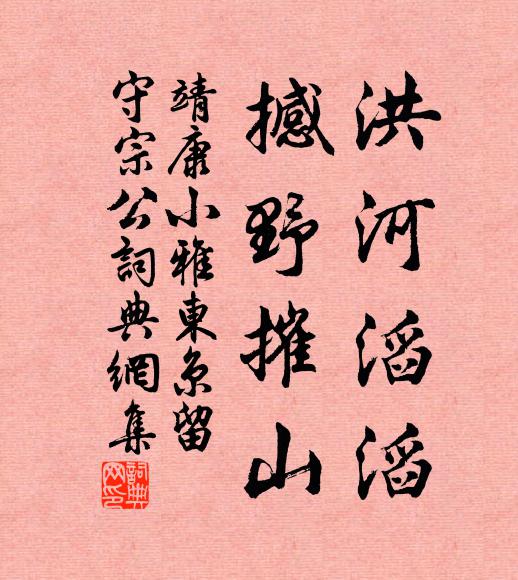 洪河滔滔
撼野摧山
靖康小雅東京留
守宗公詞典網集
詞典网印